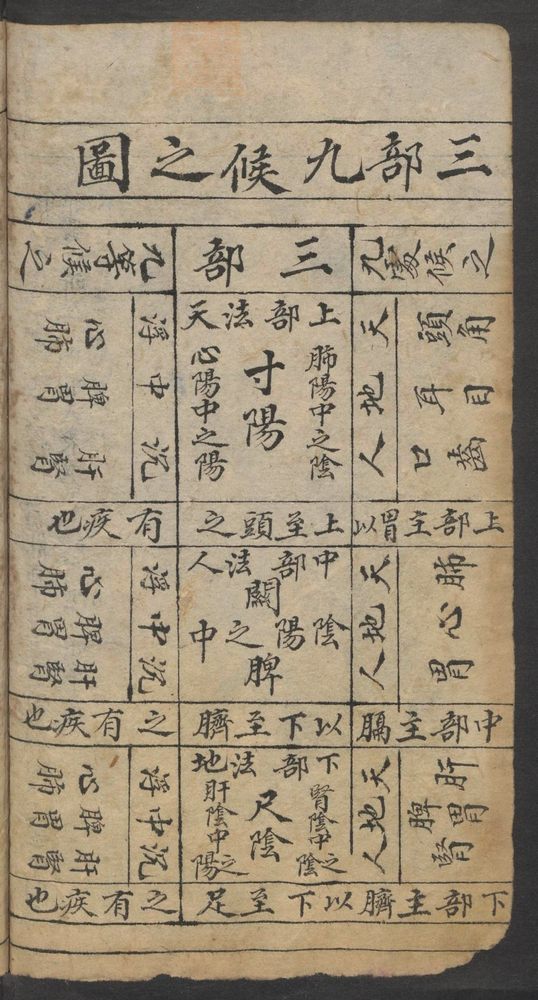 三部九候之圖
九處候之
三部
九等候之
頭角
耳目
口齒
天地人
上部法天
肺陽中之陰
寸陽
心陽中之陽
浮中沉
心肺
脾胃
肝腎
上部主胃以上至頭之有疾也
肺心胃
天地人
中部法人
關
陰陽之中
脾
浮中沉
心肺
脾胃
肝腎
中部主膈以下至臍之有疾也
肝
脾胃
腎
天地人
下部法地
腎陰中之陰
尺陰
肝陰中之陽
浮中沉
心肺
脾胃
肝腎
下部主臍以下至足之有疾也